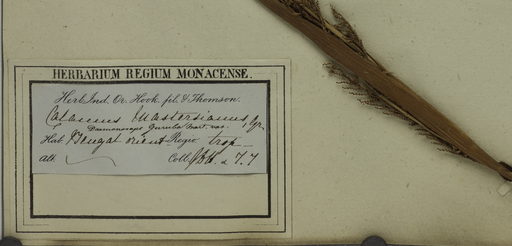 HERBARIUM REGIUM MONACENSE.
Herb. Ind. Or. Hook. fil. & Thomson.
Calamus Mastersianus, Gr.
Daemonorops Guruba Mart. var.
Hab. Bengal orient Regio trop
Alt. Coll. J.D.H. & T.T